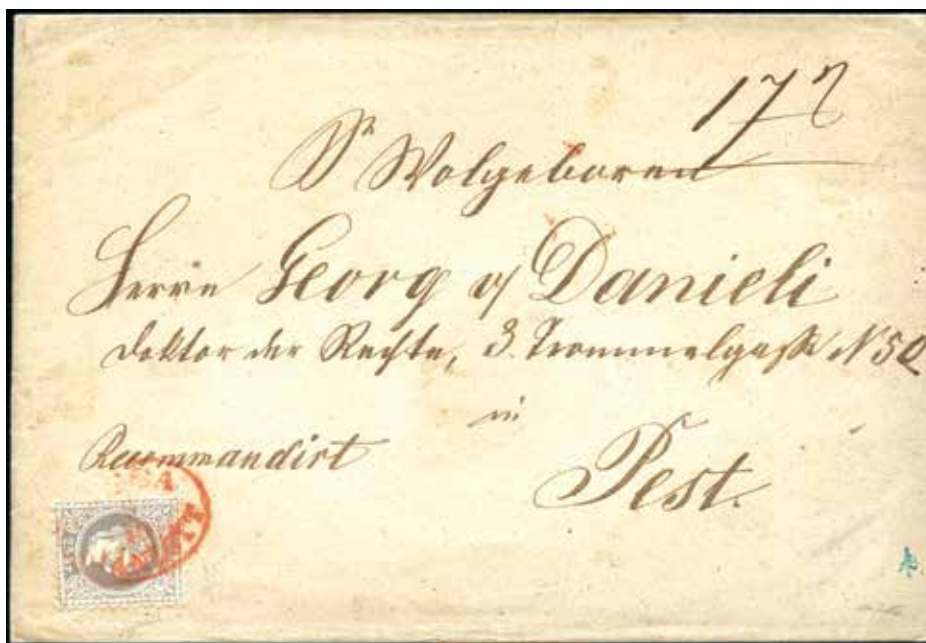 17
Sr Wolgeboren
Herrn Georg v/ Danieli
Doktor der Rechte, 3. Trommelgasse N 50
in
Recommandirt
Pest.